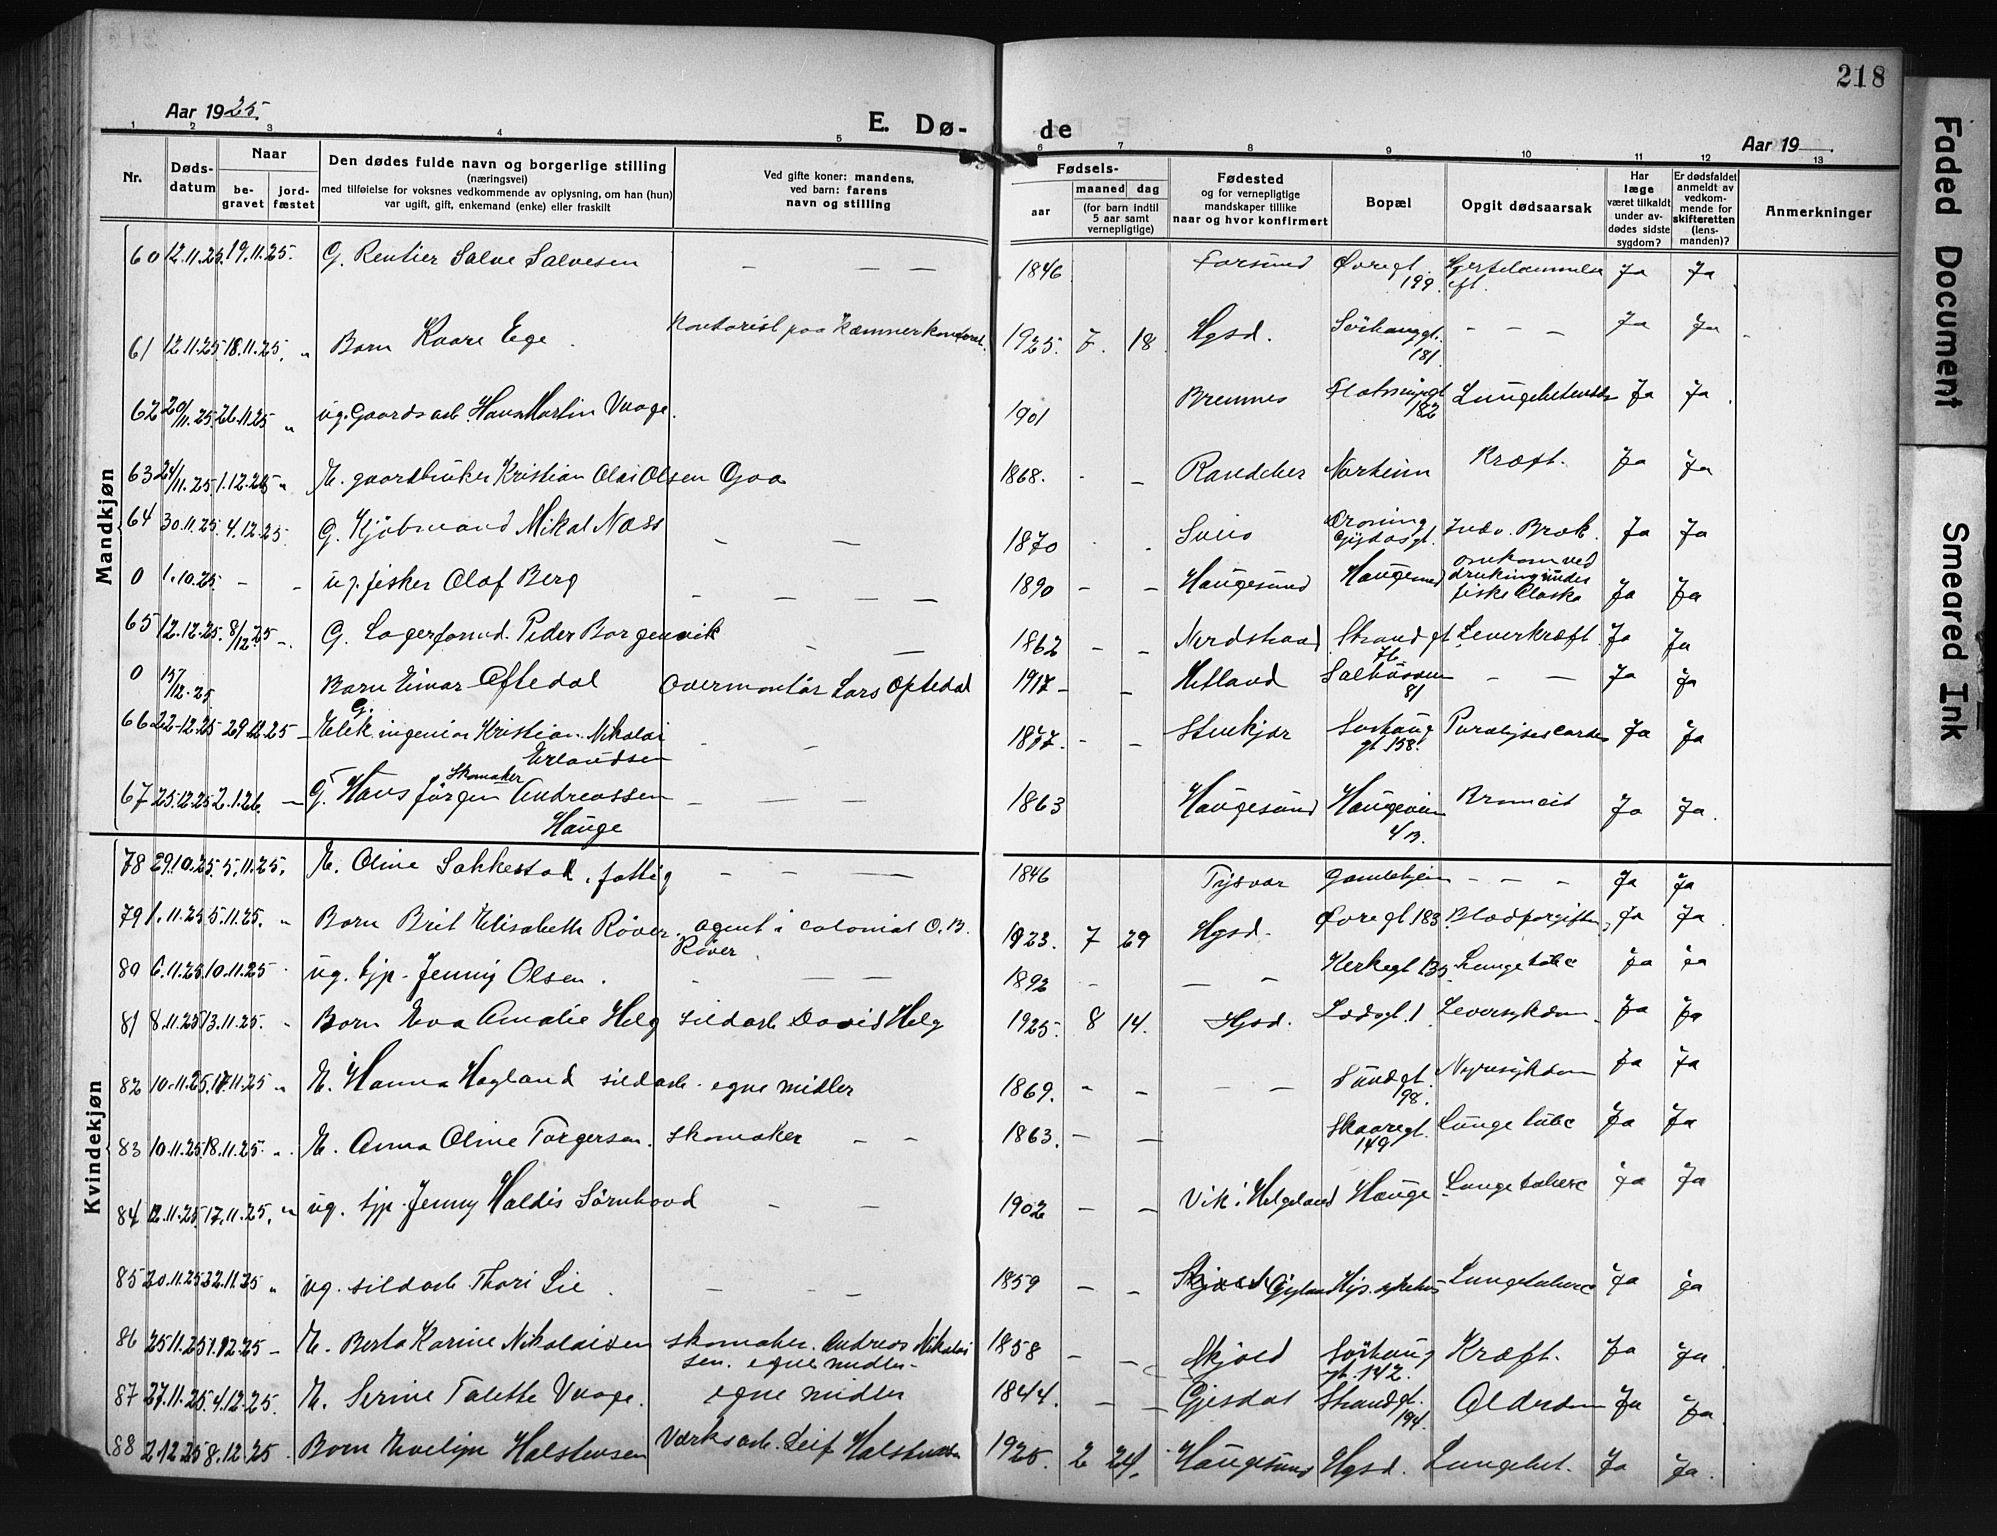 218
Aar 1925.
E. Dø-
de
Aar 19
1 2 3 4 5 6 7 8 9 10 11 12 13
Nr.
Døds-datum
Naar
be-gravet
jord-fæstet
Den dødes fulde navn og borgerlige stilling
(næringsvei)
med tilføielse for voksnes vedkommende av oplysning, om han (hun)
var ugift, gift, enkemand (enke) eller fraskilt
Ved gifte koner: mandens,
ved barn: farens
navn og stilling
Fødsels-
aar
maaned dag
(for barn indtil
5 aar samt
vernepligtige)
Fødested
og for vernepligtige
mandskaper tillike
naar og hvor konfirmert
Bopæl
Opgit dødsaarsak
Har
læge
været tilkaldt
under av-
dødes sidste
sygdom?
Er dødsfaldet
anmeldt av
vedkom-
mende for
skifteretten
(lens-
manden)?
Anmerkninger
Mandkjøn
60 12.11.25. 19.11.25. G. Rentier Salve Salvesen — — — 1846 Farsund Øvregt. 199. Ja Ja
61 12.11.25 18.11.25. „ Barn Kaare Ege. Kontorist paa Kæmnerkontoret. 1925. 7. 18. Hgsd. Sørhauggt. 181 — — — Ja Ja
62 20/11.25. 26.11.25 „ ug. Gaardsarb. Hans Martin Vaage. 1901 Bremnes 182 Ja Ja
63 24/11.25 1.12.25 „ E. gaardbruker Kristian Olai Olsen Goa 1868. - — Norheim Kræft. Ja Ja
64 30.11.25. 4.12.25. G. Kjøbmand Mikal Næss — — 1870 Sveio Dronning Gydasgt. Indv. Bræk. Ja Ja
0 1.10.25. — — ug. fisker Olaf Berg — — — — 1890 — — Haugesund Haugesund omkom ved drukning under fiske Alaska Ja Ja
65 12.12.25. 8/12.25 —. G. Lagerformd. Peder Borgenvik — — 1862 — — Nerdstrand Strandgt. 76 Leverkræft. Ja Ja
0 15/12.25 Barn Einar Oftedal Overmontør Lars Oftedal 1917 — — Hetland Salhusveien 81 — — Ja Ja
66 22.12.25 29.12.25 — G. Elek. ingeniør Kristian Nikolai Erlandsen — — 1877. — — Stenkjær Sørhauggt 158. Ja Ja
67 25.12.25 2.1.26. — G. Skomaker Hans Jørgen Andreassen Hauge — — — 1863 Haugesund Haugeveien 4B. Ja Ja.
Kvindekjøn
78 29.10.25 5.11.25. E. Oline Sakkestad, fattig — — — 1846 Tysvær Gamlehjem — — — Ja Ja
79 1.11.25 5.11.25. „ Barn Brit Elisabeth Røver. agent i colonial O. B. Røver. 1923. 7 29 Hgsd. Øvregt 183. Blodforgiftn. Ja Ja
80 6.11.25 10.11.25 . ug. tjp. Jenny Olsen. - — — 1892 - — — — Kirkegt 135 Lungetube Ja Ja
81 8.11.25 13.11.25. „ Barn Eva Amalie Helg sildarb David Helg 1925. 8 14. Hgsd. Leversykdom Ja Ja
82 10.11.25. 17.11.25 „ E. Hanna Hagland sildarb. egne midler 1869. - — — — Sundgt. 98. Nyresykdom Ja Ja
83 10.11.25. 18.11.25. „ E. Anna Oline Torgersen. Skomaker — — 1863. — — Skaaregt. 149 Lunge tube Ja Ja
84 12.11.25 17.11.25. „ ug. tjp. Jenny Haldis Sørnhovd — — 1902 — — Vik i Helgeland Hauge Lungetuberc Ja Ja
85 20.11.25 „ ug. sildarb Thori Lie. — — 1859 — — Lungetuberc Ja Ja
86 25.11.25 1.12.25 — E. Berta Karine Nikolaisen skomaker. Andreas Nikolaisen. egne midler — 1858 — — Skjold Sørhauggt. 142. Kræft. Ja Ja
87 27.11.25. 4.12.25. E. Serine Talette Vaage. egne midler 1844. — — Gjesdal Strandgt. 194. Alderdom Ja Ja.
88 2.12.25 8.12.25. Barn Evelyn Halstensen Værksarb. Leif Halstensen 1925. 2 24. Haugesund Hgsd. Lungebet. Ja Ja.
Faded Document
Smeared Ink